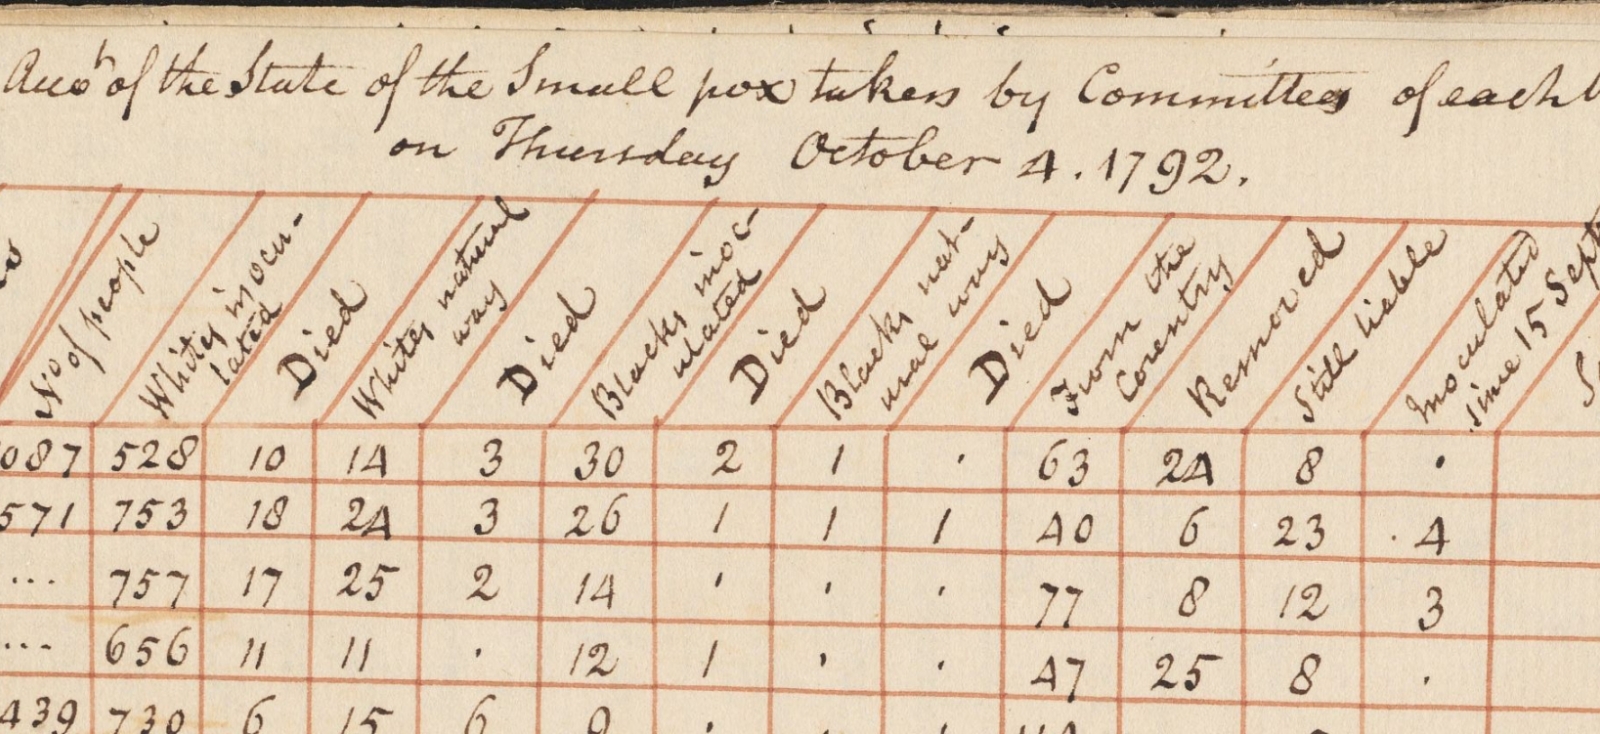 Acco.t of the State of the Small pox taken by Committees of each
on Thursday October 4. 1792.
No of people
Whites inocu-
lated
Died
Whites natural
way
Died
Blacks inoc-
ulated
Died
Blacks nat-
ural way
Died
From the
Coventry
Removed
Still liable
Inoculated
since 15 Sept
087 528 10 14 3 30 2 1 . 63 24 8 .
571 753 18 24 3 26 1 1 1 40 6 23 . 4
... 757 17 25 2 14 . . . 77 8 12 3
... 656 11 11 . 12 1 . . 47 25 8 .
439 730 6 15 6 9 . . .